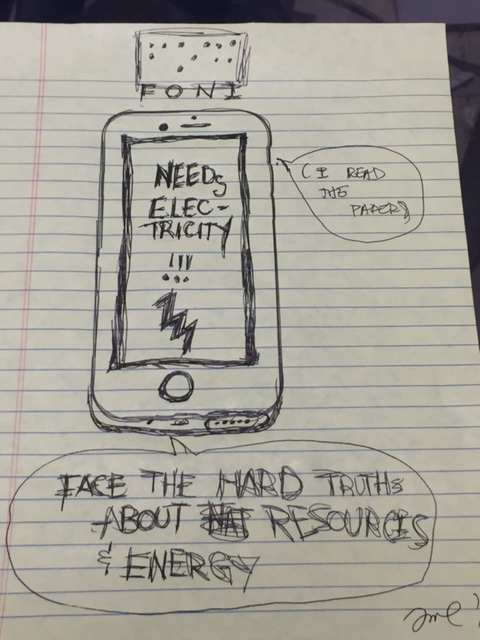 FONI
NEEDS
ELEC-
TRICITY
!!!
(I READ
THE
PAPER)
FACE THE HARD TRUTHS
ABOUT RESOURCES
& ENERGY